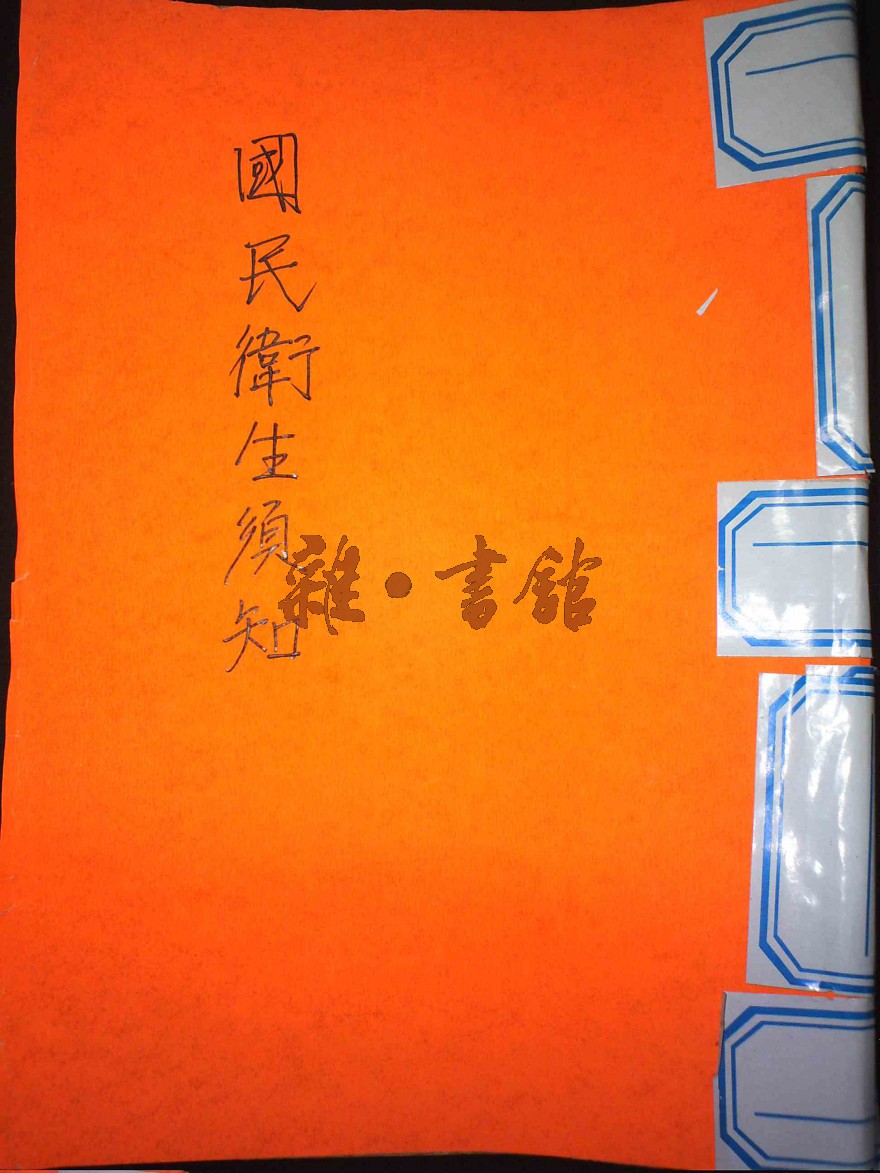 國民衛生須知
雜·書館